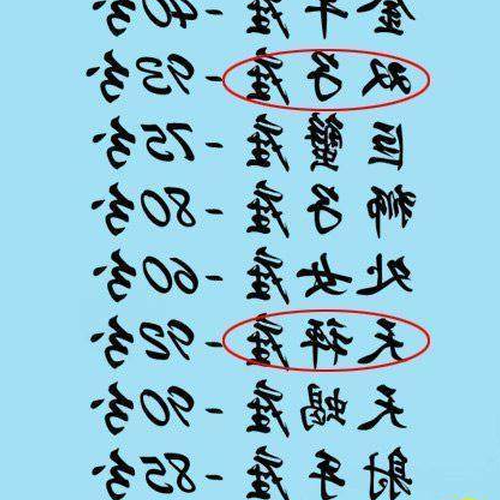 金牛座 - 40分
双子座 - 95分
巨蟹座 - 75分
狮子座 - 80分
处女座 - 60分
天秤座 - 92分
天蝎座 - 90分
射手座 - 85分